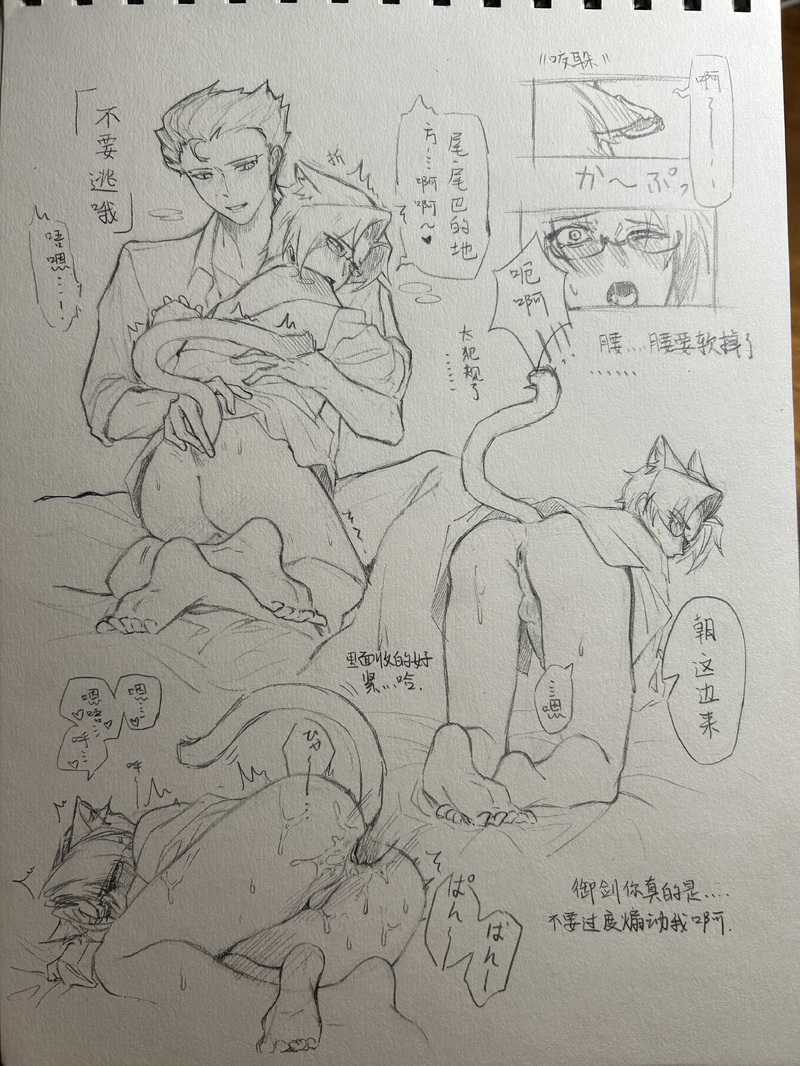 "咬躲"
啊了——
か～ぷっ
「不要逃哦」
唔嗯……!
折
尾、尾巴的地
方……啊啊～♥
呃
啊
太犯规了
……
腰…腰要软掉了
……
朝这边来
…嗯
里面收的好
紧…哈.
嗯…
嗯唔
呼…
呼
ひゃ
ぱん～
ぱん—
御剑你真的是….
不要过度煽动我啊.